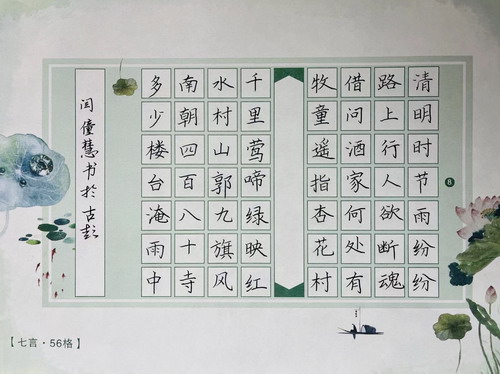 清明时节雨纷纷
路上行人欲断魂
借问酒家何处有
牧童遥指杏花村
千里莺啼绿映红
水村山郭九旗风
南朝四百八十寺
多少楼台淹雨中
闫僮慧书於古彭
8
【七言·56格】